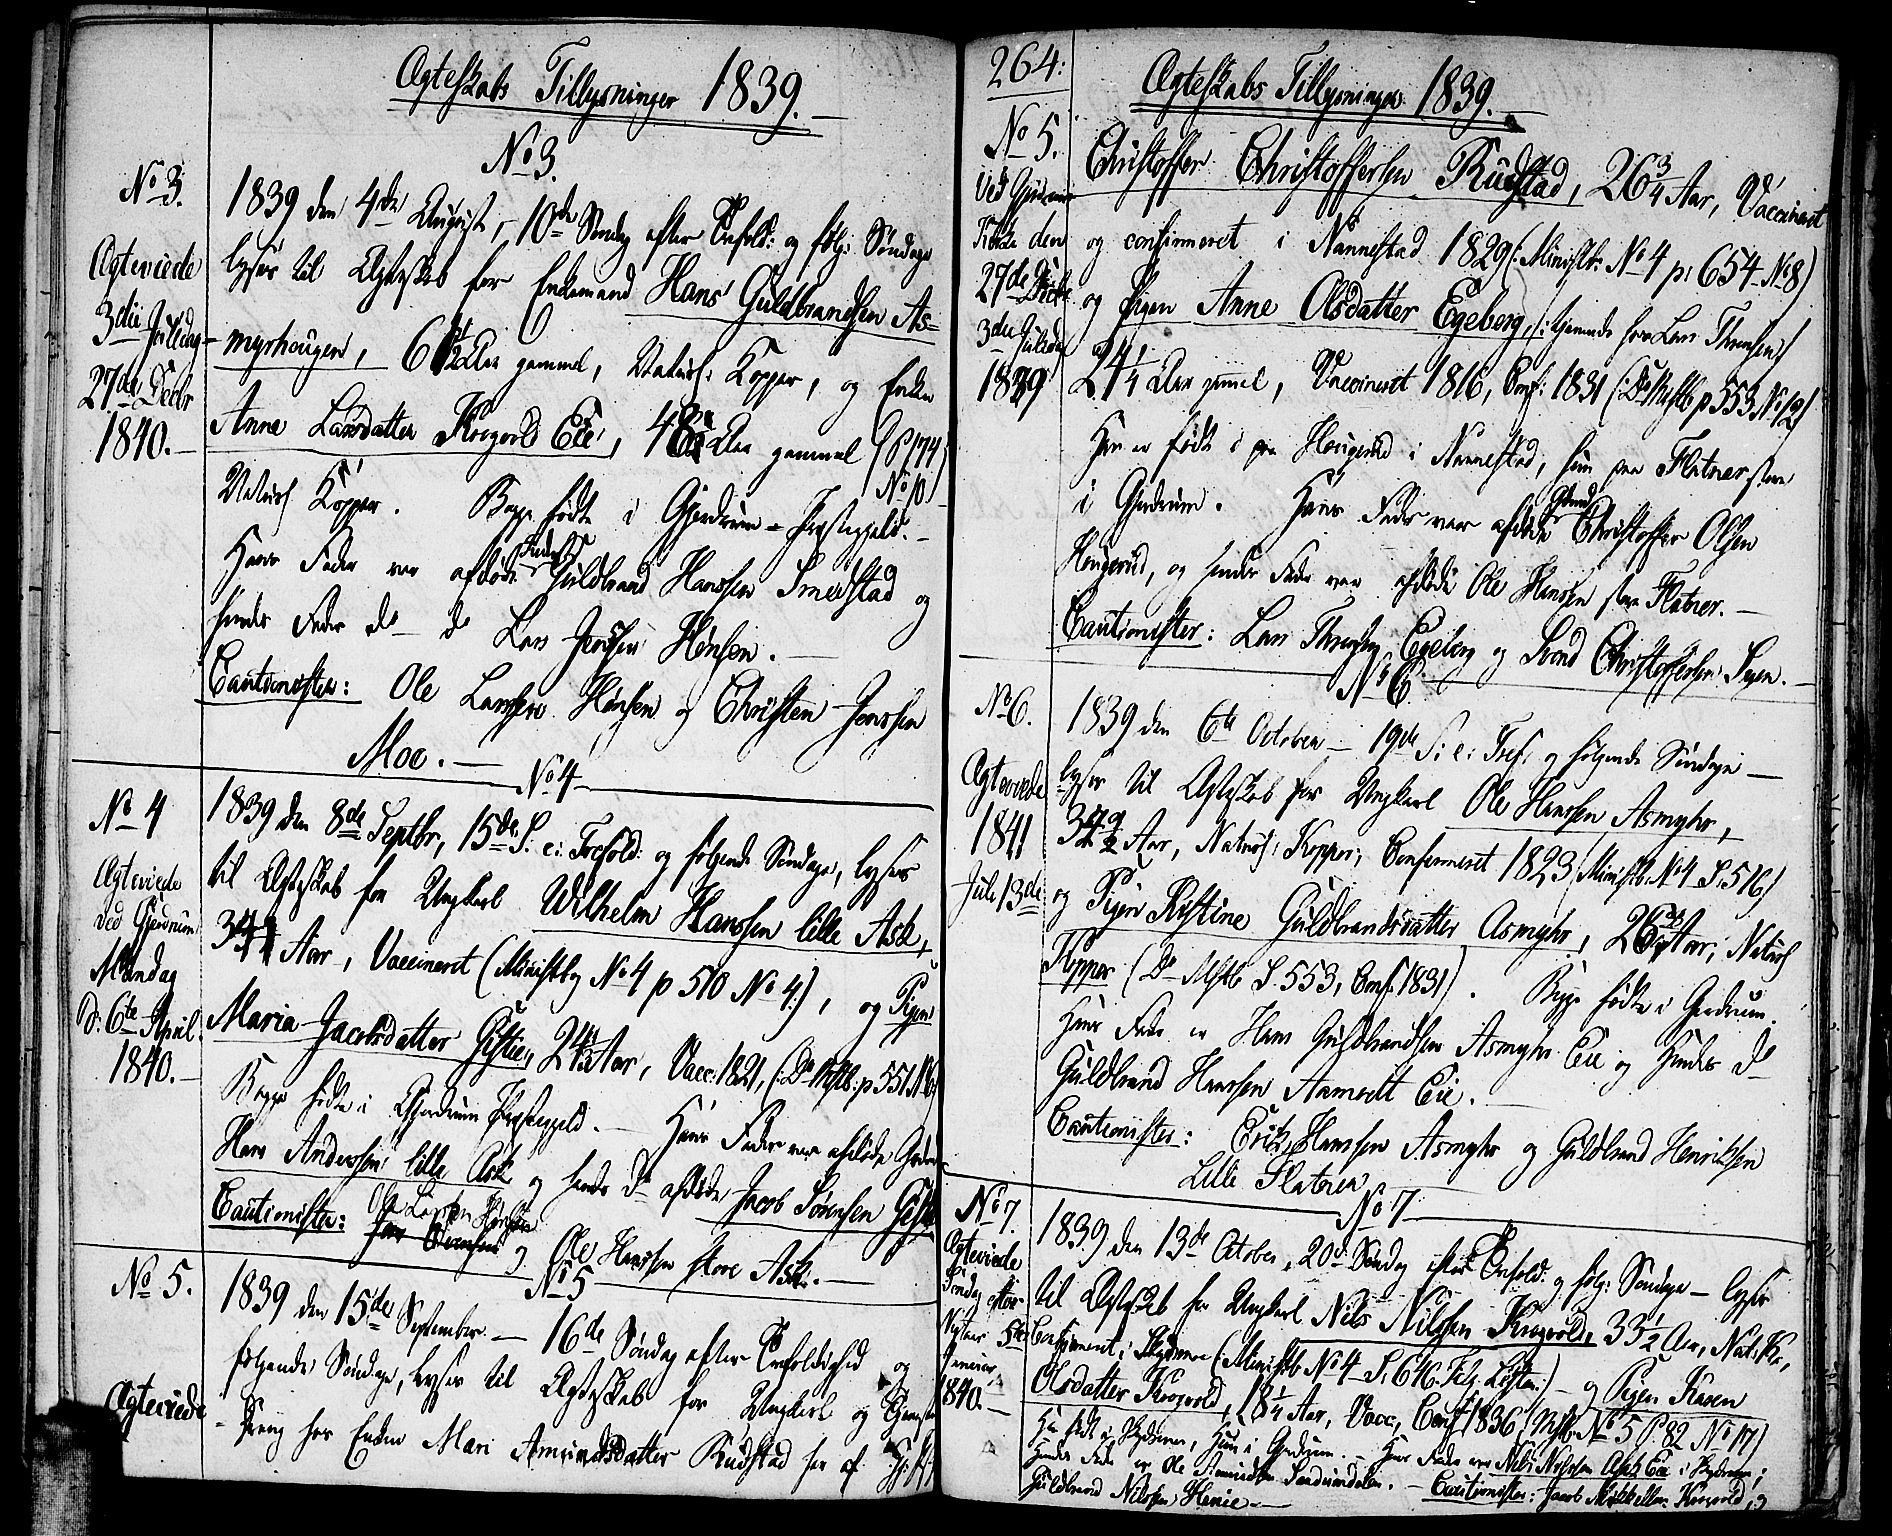 Ægteskabs Tillysninger 1839.
No 3.
No 3.
Ægteviede
3die Juledag
27de Decbr
1840.
1839 den 4de August, 10de Søndag efter Trefold: og følg: Søndage
lyses til Ægteskab for Enkemand Hans Guldbrandsen As-
myrhougen, Aar gammel, Naturl: Kopper, og Enken
Anne Larsdatter Krogvold Eie, Aar gammel (P 174
No 10)
Naturl Kopper. Begge fødte i Gjerdrum Præstegjeld.
Hans Fader var afdøde Guldbrand Hanssen Smedstad og
hendes Fader do do Lars Jenssen Hønsen.
Cautionister: Ole Larssen Hønsen og Christen Jenssen
Moe.
No 4
No 4
Ægteviede
ved Gjerdrum
Mandag
d: 6te April
1840.
1839 den 8de Septbr, 15de S. e. Trefold: og følgende Søndage, lyses
til Ægteskab for Ungkarl Wilhelm Hanssen lille Ask,
Aar, Vaccineret (Ministbog No 4 p 510 No 4), og Pigen
Maria Jacobsdatter Gistie, Aar, Vacc: 1821, (Do Mstb: p 551 No 6)
Begge fødte i Gjerdrum Præstegjeld. Hans Fader var afdøde
Hans Anderssen lille Ask og hendes Do afdøde Jacob Sørensen
Cautionister: Ole Larssen Hønsen
og Ole Hanssen store Ask.
No 5
No 5.
Ægteviede
1839 den 15de September 16de Søndag efter Trefoldighed og
følgende Søndage, lyses til Ægteskab for Ungkarl og
Dreng hos Enken Mari Amundsdatter Rudstad her af
264:
Ægteskabs Tillysninger 1839.
No 5.
Ved Gjerdrum
Kirke den
27de Decbr
3die Juledag
1839
Christoffer Christoffersen Rudstad, 26 3/4 Aar, Vaccineret
og confirmeret i Nannestad 1829 (Ministb: No 4 p: 654 No 8)
og Pigen Anne Olsdatter Egeberg, (: tjenende hos Lars Thronsen)
24 1/4 Aar gammel, Vaccineret 1816, Conf: 1831 (: Do Mstb p 553 No 12)
Han er født i paa Hougerud i Nannestad, hun paa Flatner store
i Gjerdrum. Hans Fader var afdøde Christoffer Olsen
Hougerud, og hendes Fader var afdøde Ole Hansen store Flatner.
Cautionister: Lars Egeberg og Svend Christoffersen
No 6
No 6.
Ægteviede
1841
Juli 13de
1839 den 6te October 19de S: e: Tref: og følgende Søndage
lyses til Ægteskab for Ungkarl Ole Hanssen Asmyhr,
Aar, Naturl: Kopper, Confirmeret 1823 (Ministb: No 4 S: 516)
og Pigen Kistine Guldbrandsdatter Asmyhr, Aar, Naturl
Kopper (Do Mstb S. 553, Conf: 1831). Begge fødte i Gjerdrum.
Hans Fader er Hans Guldbrandsen Asmyhr Eie og Hendes Do
Guldbrand Hanssen Aamodt Eie.
Cautionister: Erik Hanssen Asmyhr og Guldbrand Henriksen
Lille Flatner
No 7
No 7
Ægteviede
Søndag efter
Nytaar 5te
Januar
1840.
1839 den 13de October, 20de Søndag efter Trefold: og følg: Søndage lyses
til Ægteskab for Ungkarl Nils Nilssen Krogvold, 33 1/2 Aar, Nat: K:,
Confirmeret i (Ministb No 4 S: 646 ) og Pigen Karen
Olsdatter Krogvold, 18 1/4 Aar, Vacc, Conf 1836 (Mstb No 5 P. 82 No 17)
Han født i , Hun i Gjerdrum. Hans Fader var Nils Nilssen Ask Eie i
Hendes Fader er Ole Amundsen .
Cautionister: Jacob Krogvold, og
Guldbrand Nilssen Henie